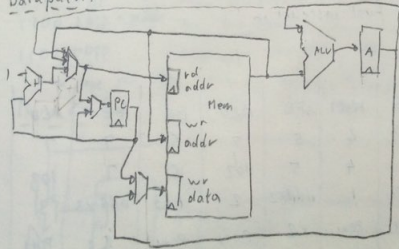 Datapath
1
ALU
A
rd
addr
PC
Mem
wr
addr
wr
data